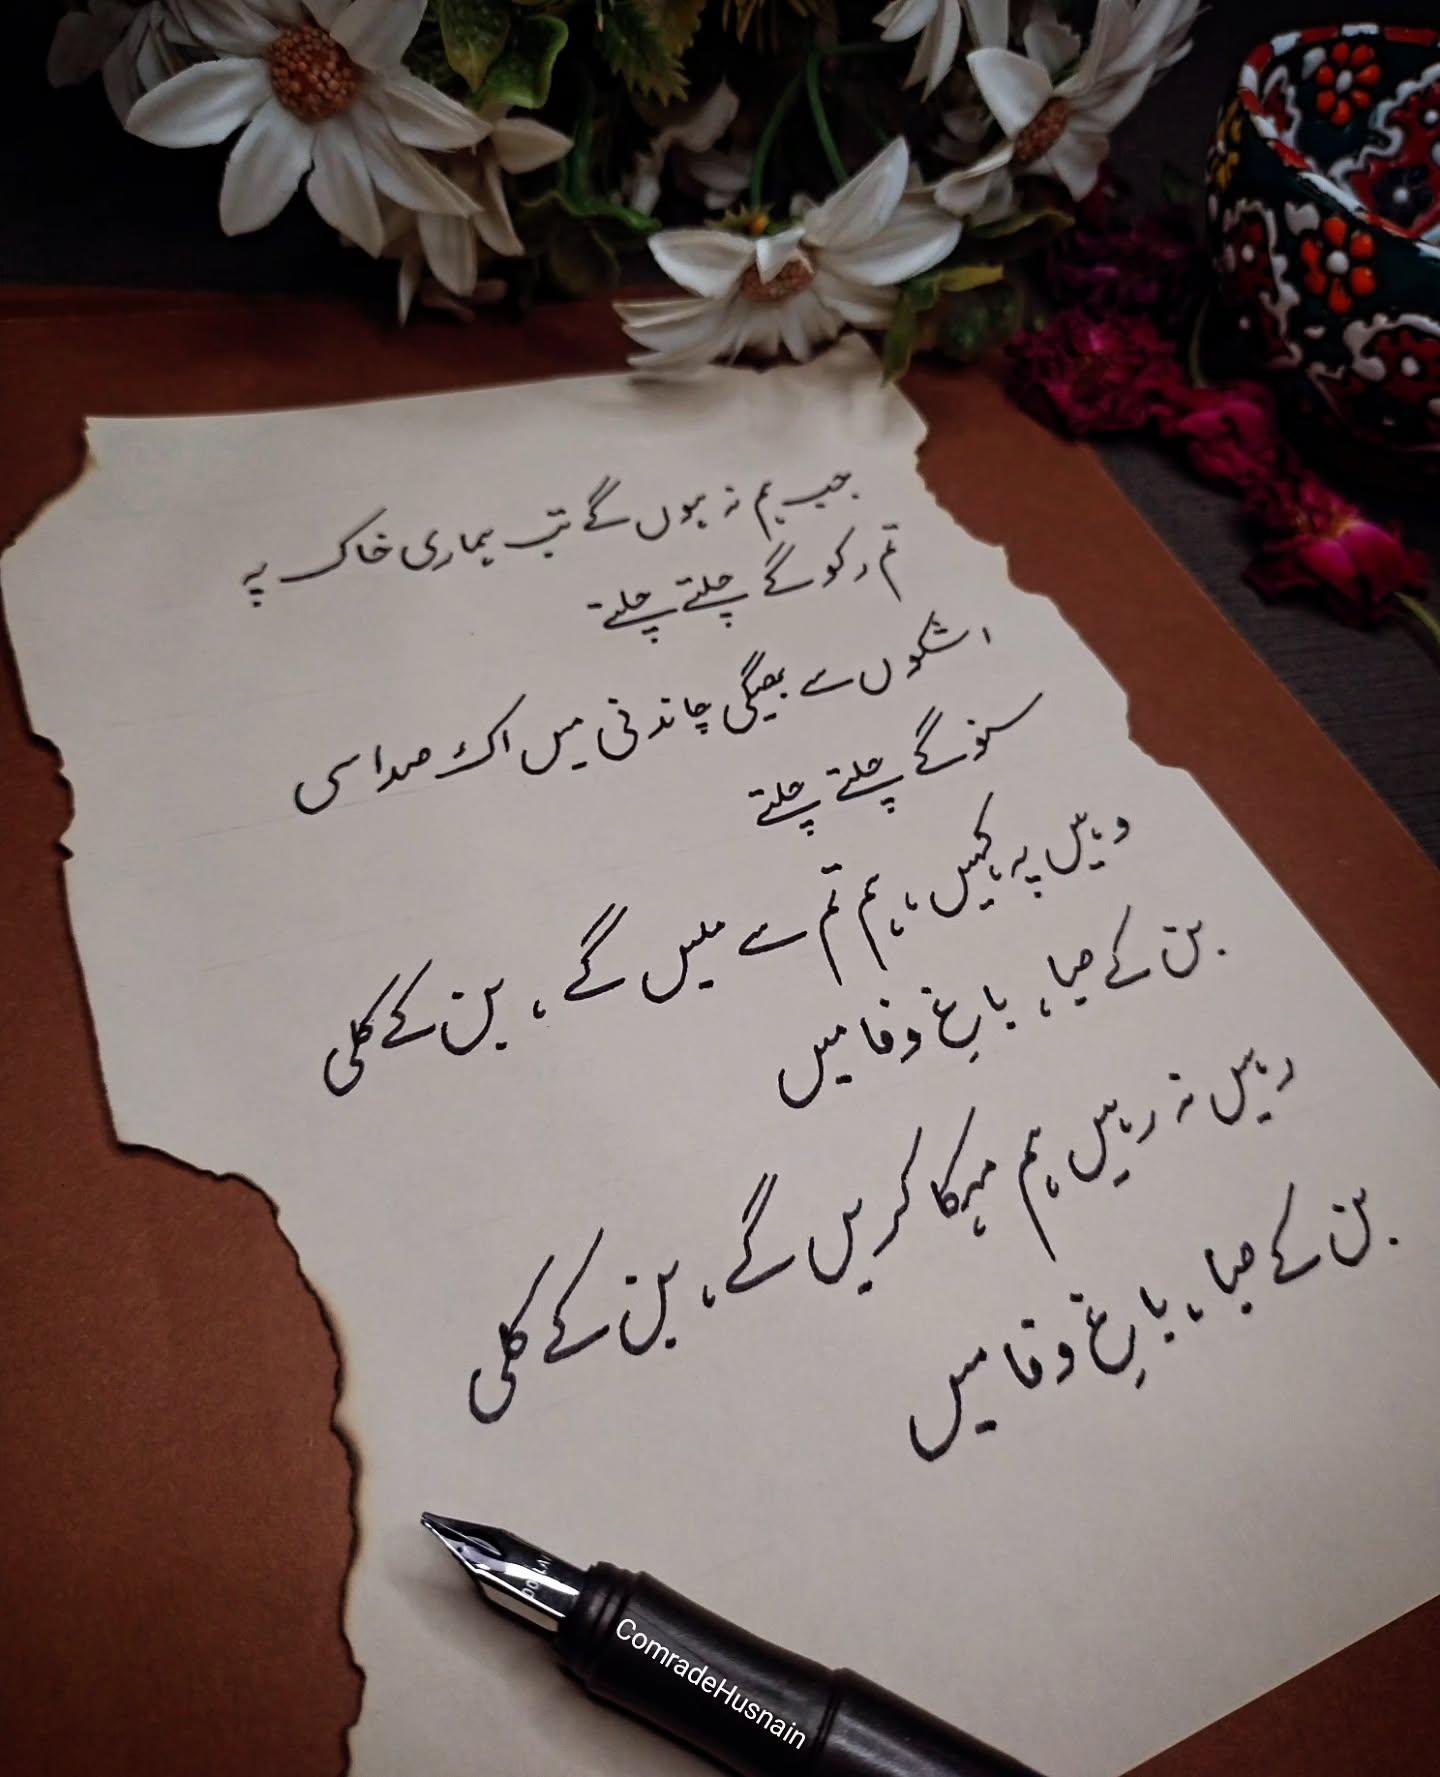 جب ہم نہ ہوں گے تب ہماری خاک پہ
تم رکو گے چلتے چلتے
اشکوں سے بھیگی چاندنی میں اک صدا سی
سنو گے چلتے چلتے
وہیں پہ کہیں، ہم تم سے ملیں گے، بن کے کلی
بن کے صبا، باغِ وفا میں
رہیں نہ رہیں ہم مہکا کریں گے، بن کے کلی
بن کے صبا، باغِ وفا میں
DOLLAR
ComradeHusnain